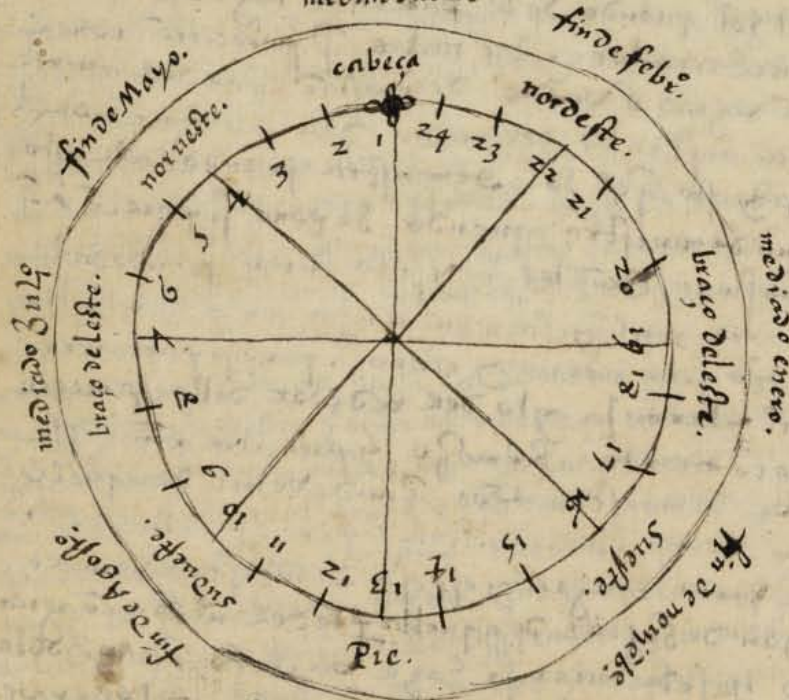 cabeça
fin de febrº.
nordeste.
braço deleste.
mediado enero.
sueste.
fin de noviẽbe.
Pie.
suduueste.
fin de Agosto.
braço deleste.
mediado Julº
norueste.
fin de Mayo.
1
2
3
4
5
6
7
8
9
10
11
12
13
14
15
16
17
18
19
20
21
22
23
24